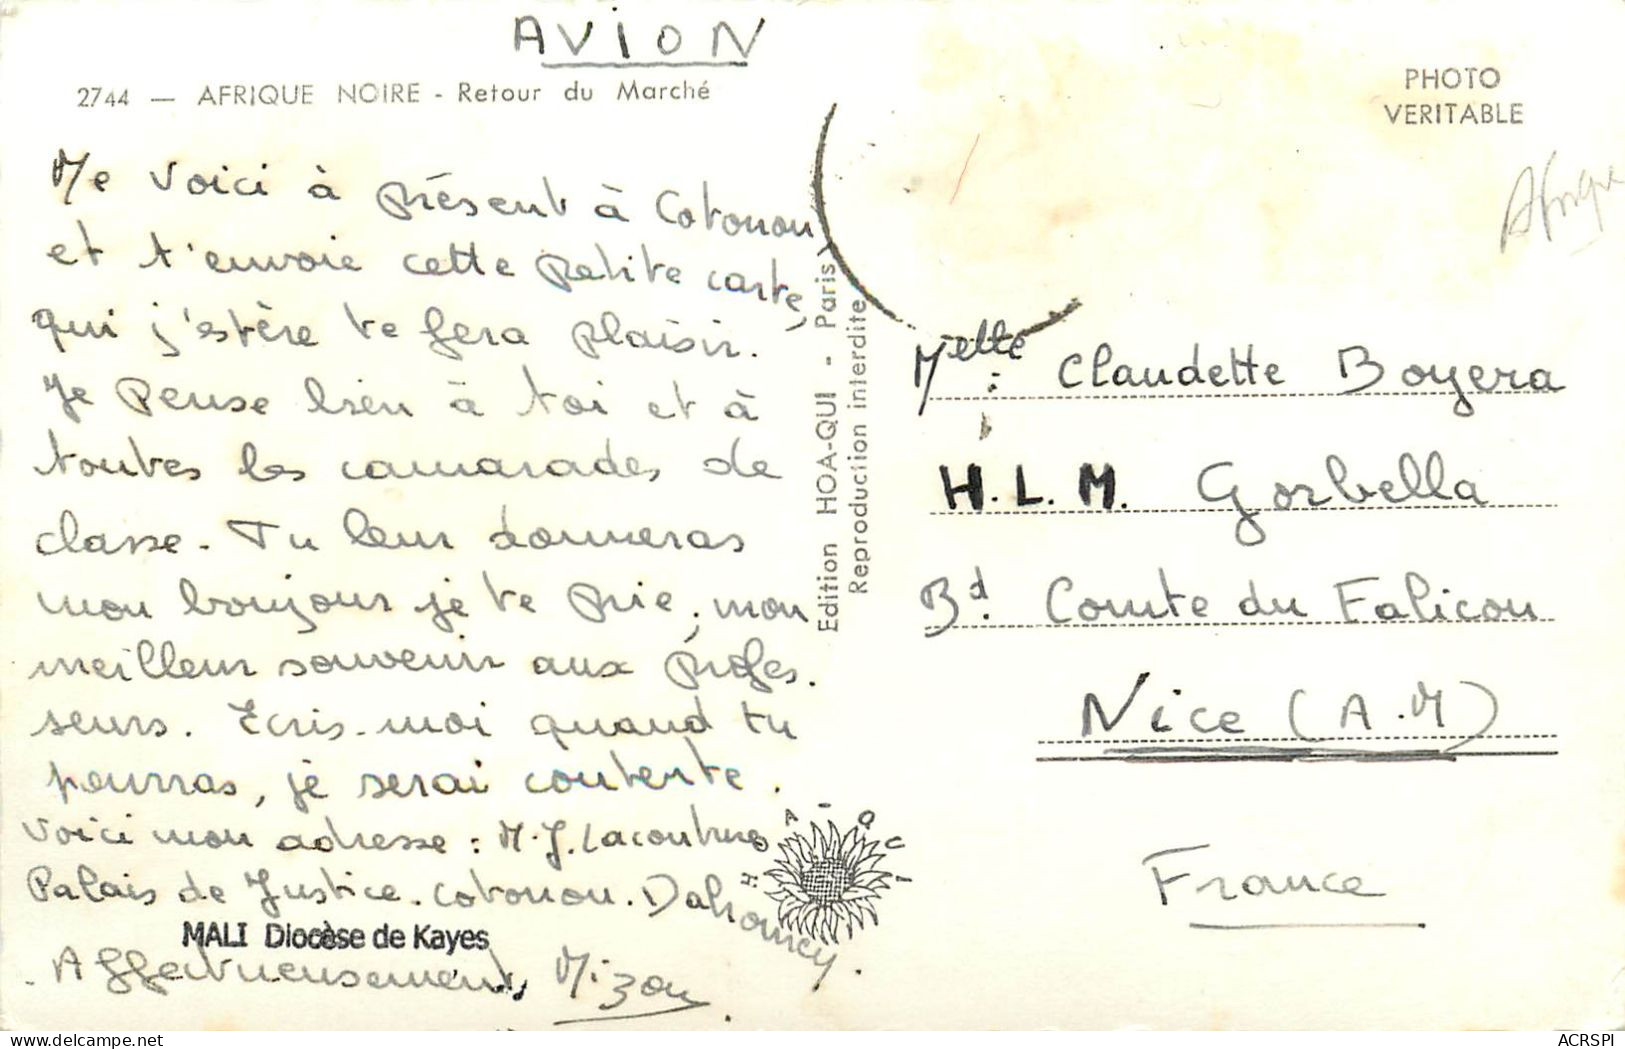 AVION
2744 — AFRIQUE NOIRE - Retour du Marché
PHOTO
VERITABLE
Afrique
Me voici à présent à Cotonou
et t'envoie cette petite carte,
qui j'estère te fera plaisir.
Je pense bien à toi et à
toutes les camarades de
classe. Tu leur donneras
mon bonjour je te prie, mon
meilleur souvenir aux profes.
seurs. Ecris-moi quand tu
pourras, je serai contente.
Voici mon adresse : M.J. Lacouture
Palais de Justice. Cotonou. Dahomey.
MALI Diocèse de Kayes
Affectueusement, Mizou
Edition HOA-QUI - Paris
Reproduction interdite
HOA-QUI
Melle Claudette Boyera
H.L.M. Gorbella
Bd. Comte du Falicon
Nice (A.M)
France
ACRSPI